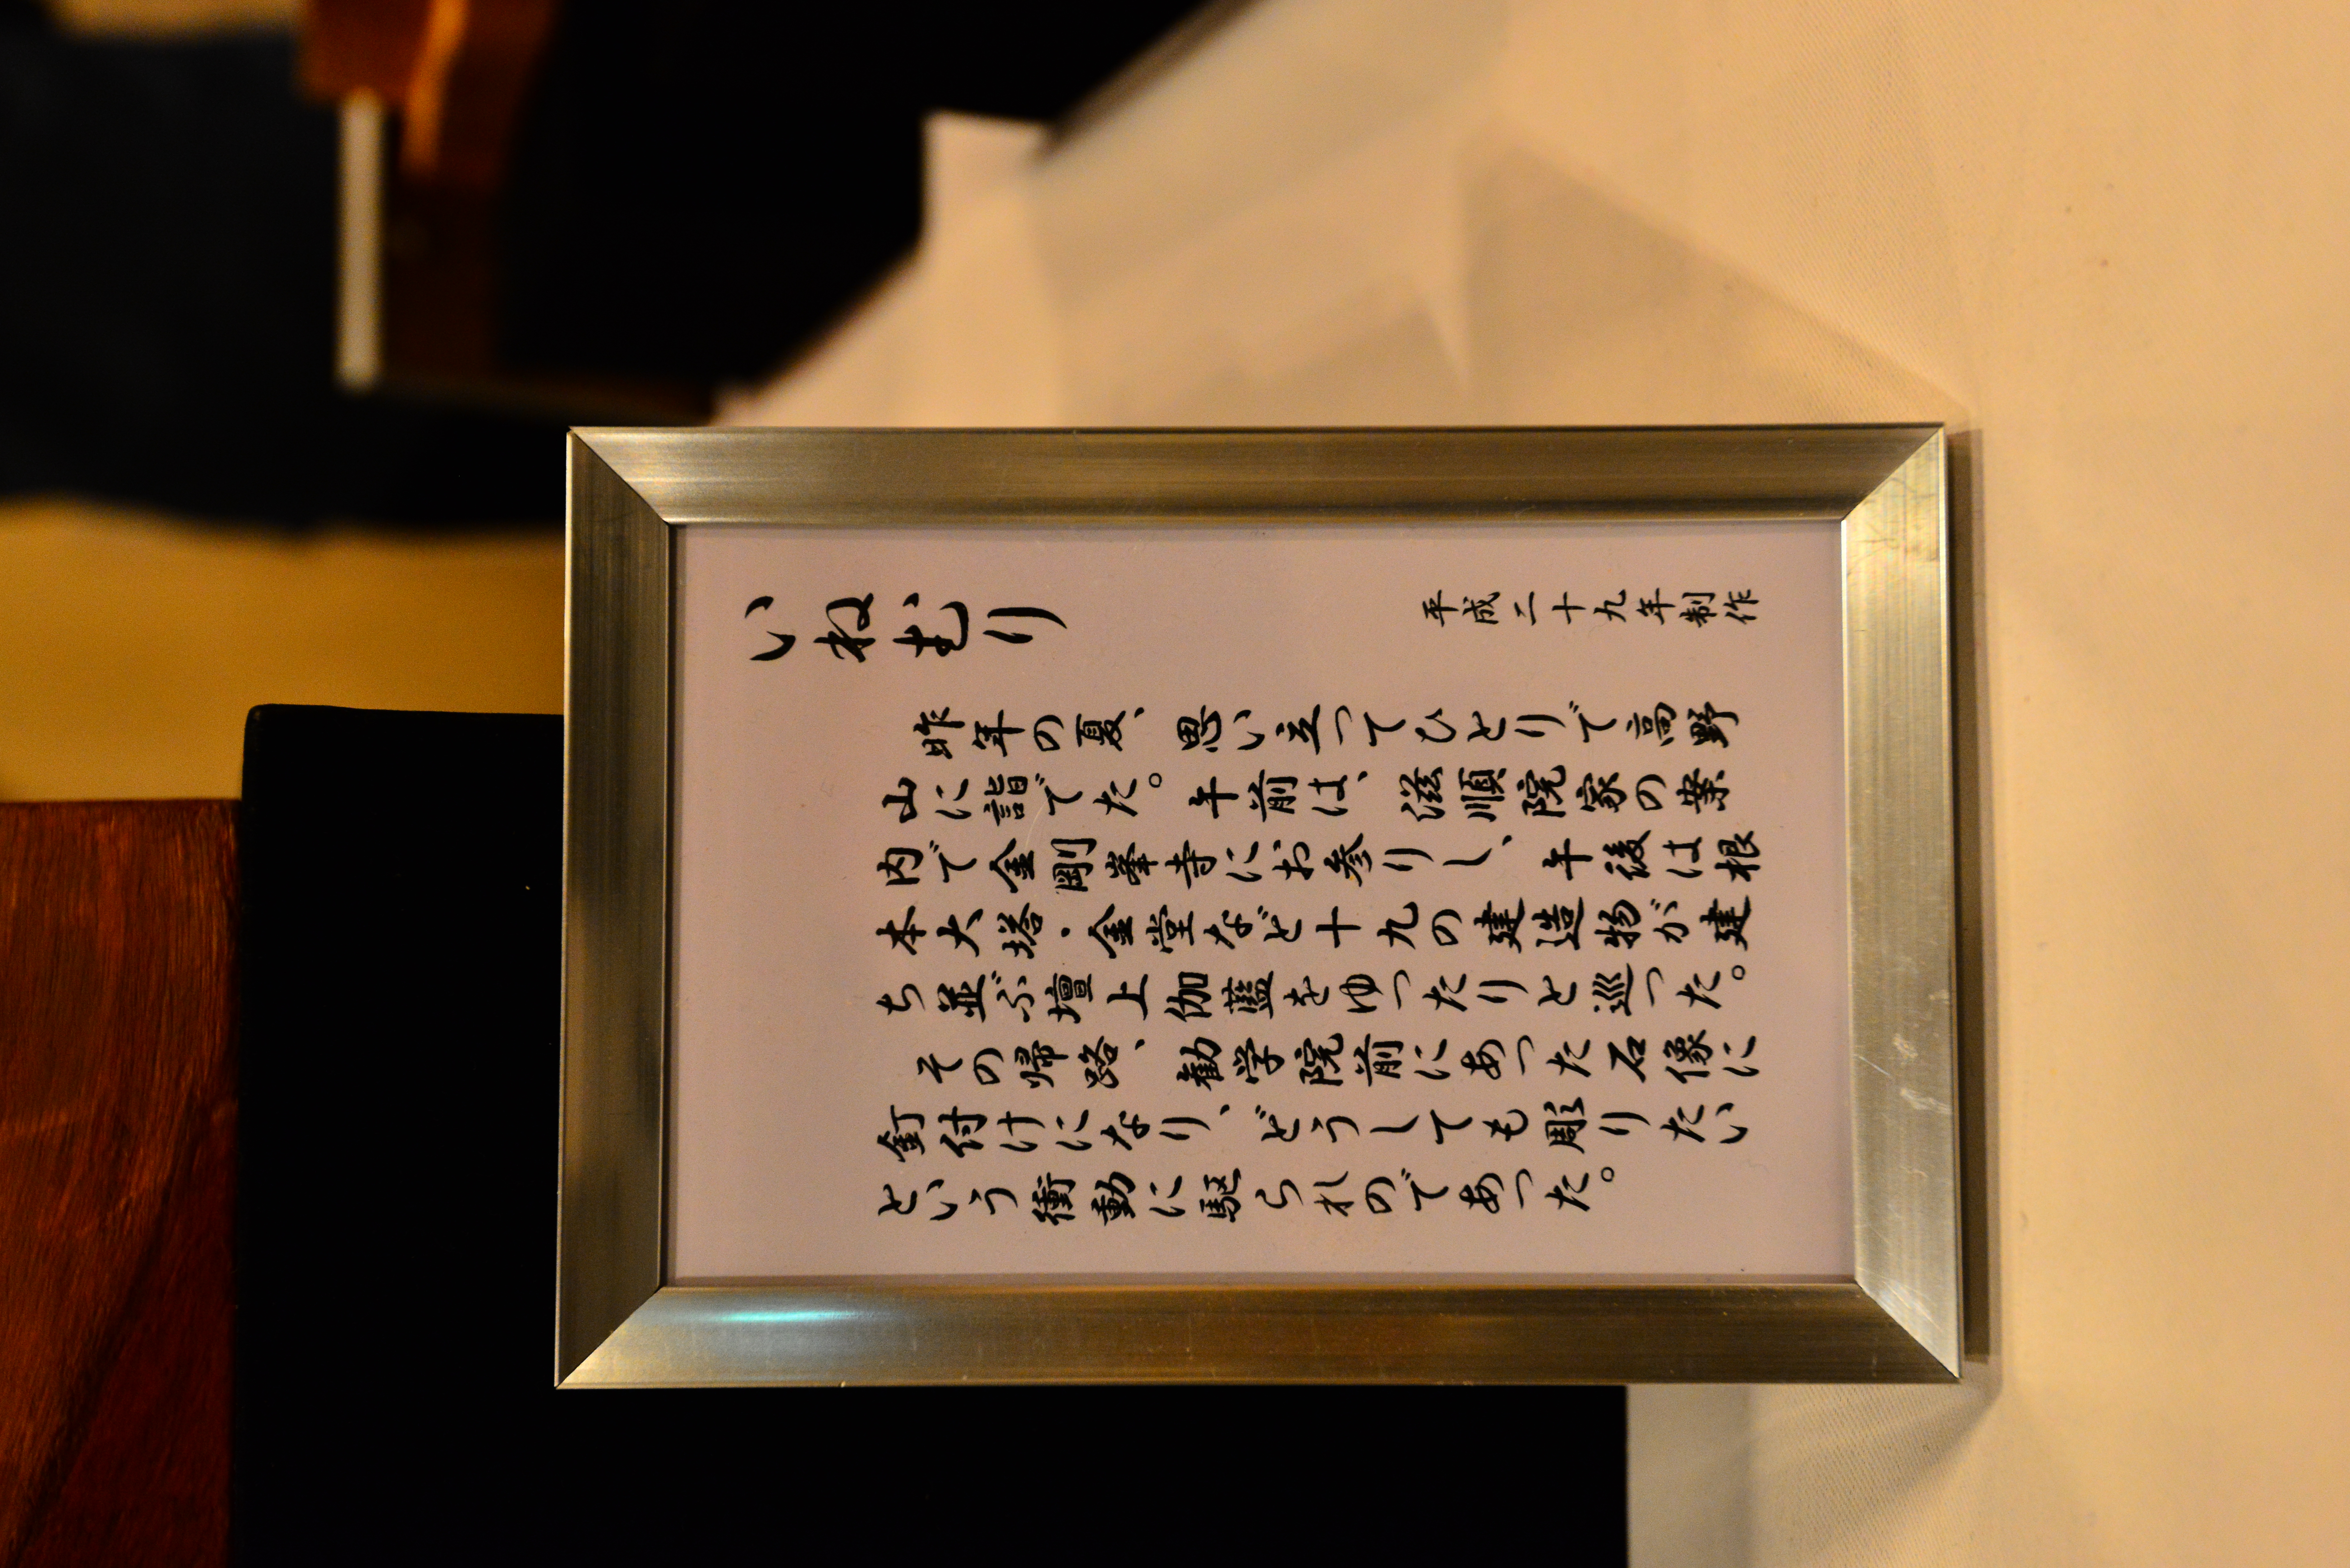 いねむり
平成二十九年制作
昨年の夏、思い立ってひとりで高野
山に詣でた。午前は、滋順院家の案
内で金剛峯寺にお参りし、午後は根
本大塔・金堂など十九の建造物が建
ち並ぶ壇上伽藍をゆったりと巡った。
その帰路、勧学院前にあった石像に
釘付けになり、どうしても彫りたい
という衝動に駆られのであった。